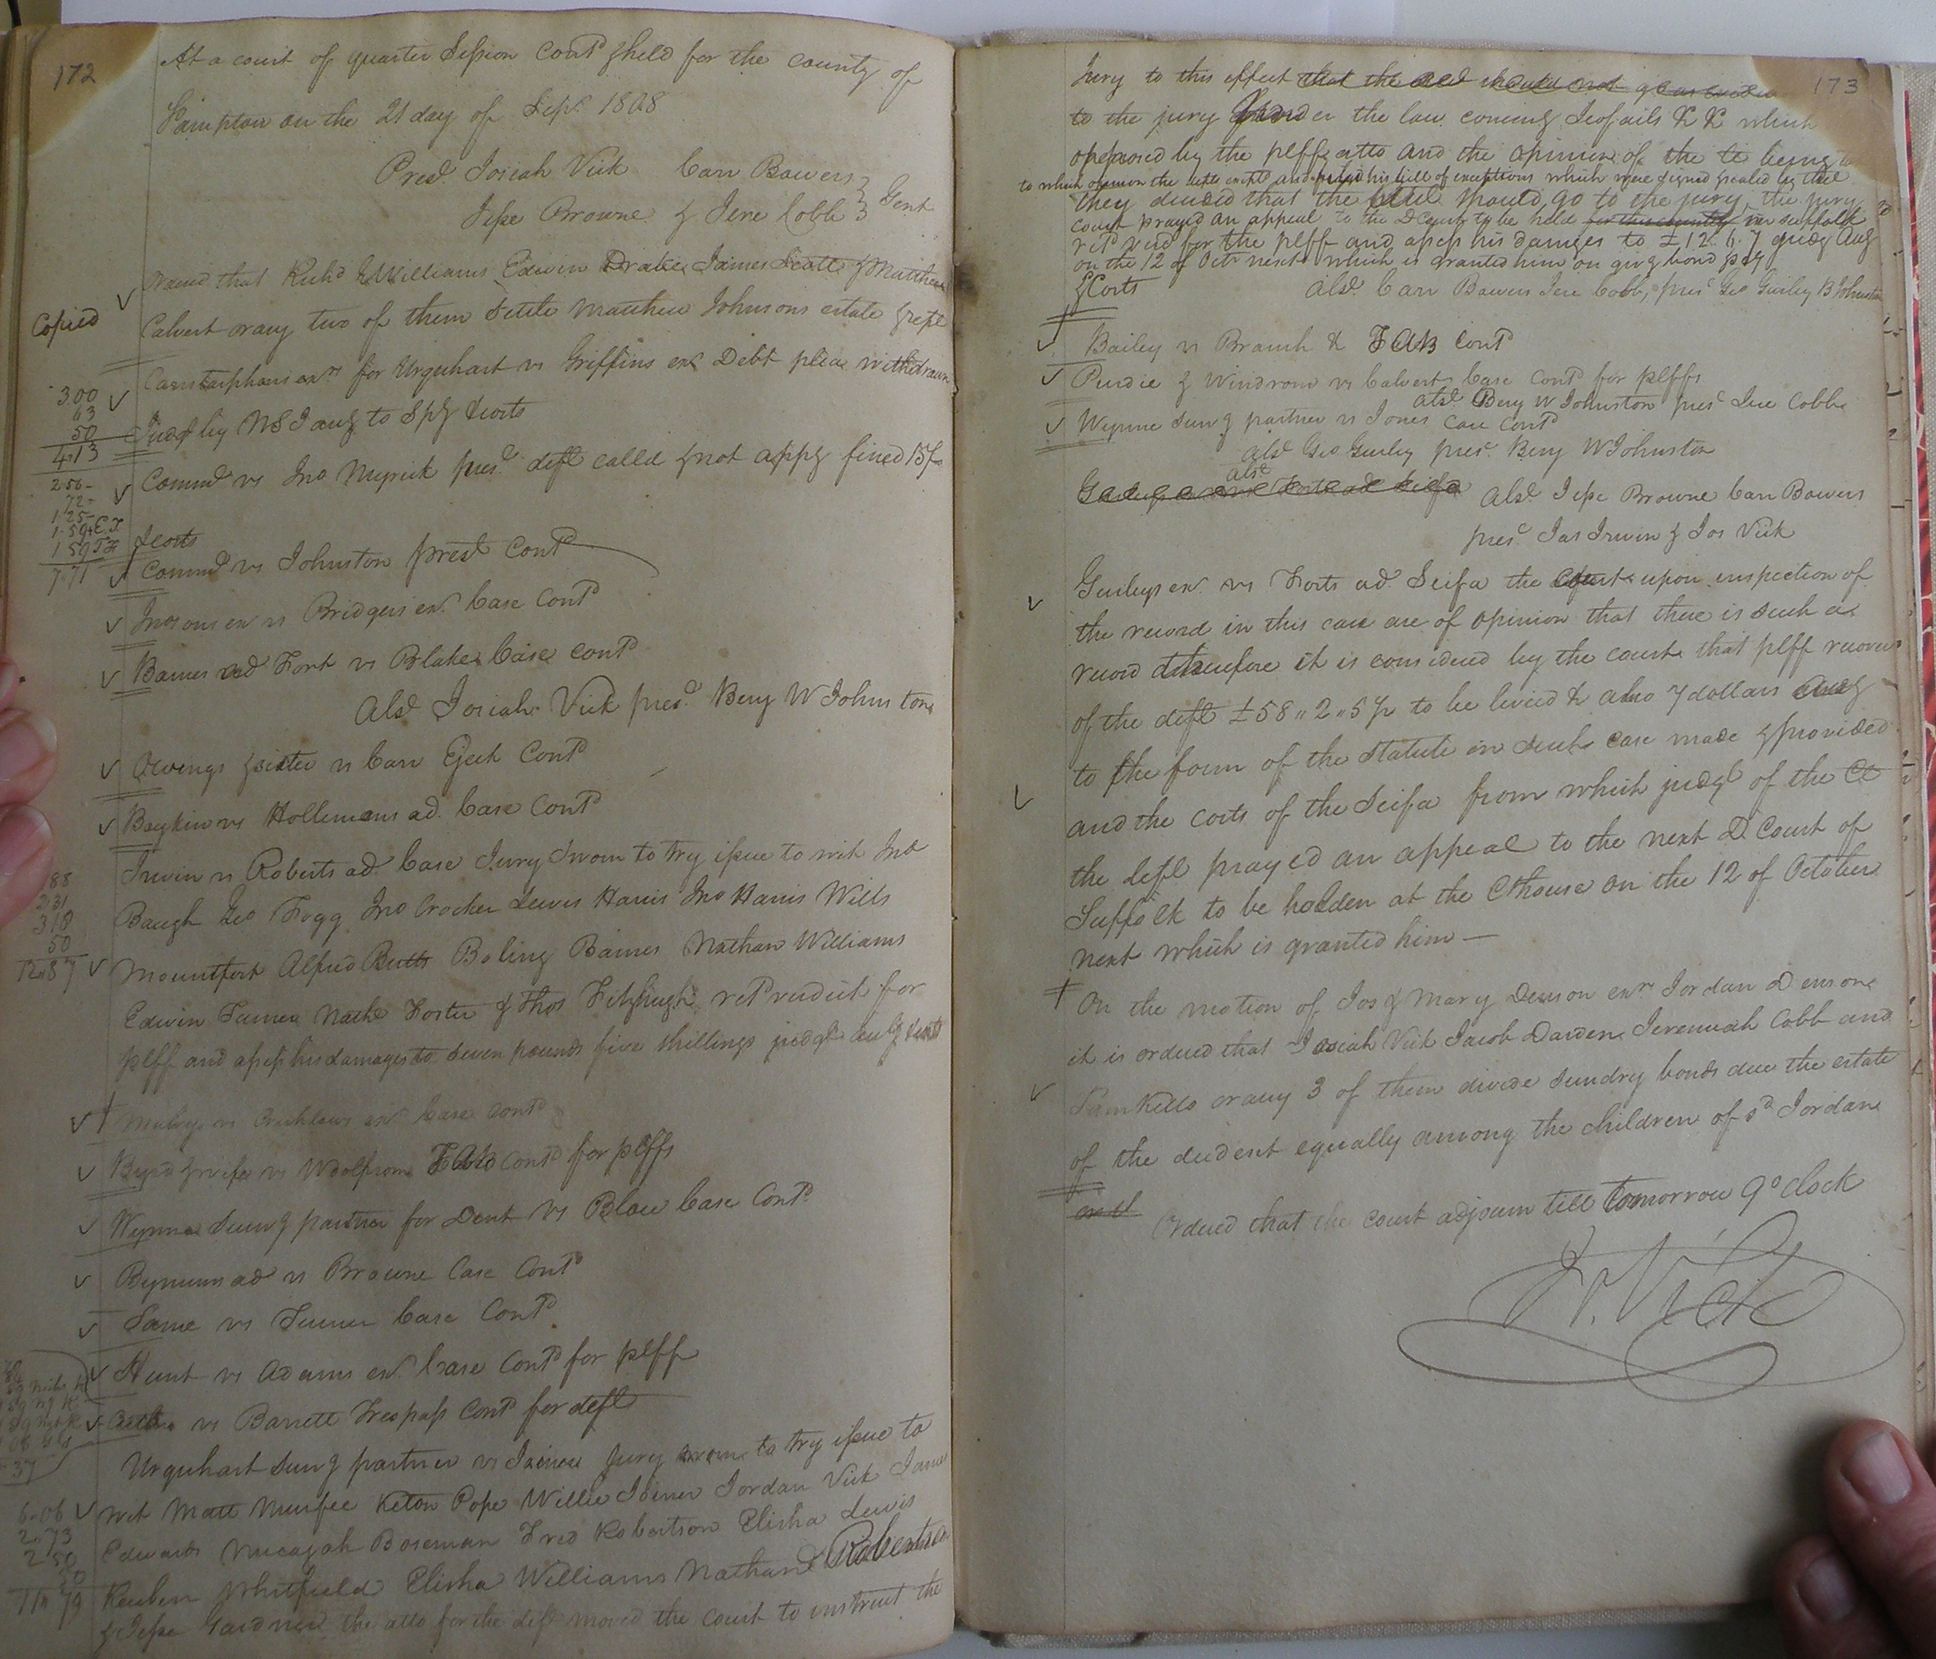 172
At a court of quarter Session Contd & held for the county of
Sampton on the 21 day of Sepr 1808
Presd Josiah Vick Carr Bowers
Jesse Browne & Jere Cobb Gent
Copied
Ordered that Richd G Williams Edwin Drake James Scott & Matthew
Calvert or any two of them Settle Matthew Johnsons estate & rept
for Urquhart vs Griffins exr Debt plea withdrawn
Judgt by NSI
300
63
50
4.13
Commd vs Jno Myrick presd deft called & not appg fined 15/-
& costs
256
72
1.25
1.59 EX
1 59
7.71
Commd vs Johnston presd Contd
vs Bridgers exr Case Contd
Barnes ad Fort vs Blake Case Contd
Absd Josiah Vick presd Benj W Johnston
Owings & sister vs Carr Eject Contd
Boykin vs Hollemans ad. Case Contd
Irwin vs Roberts ad. Case Jury Sworn to try issue to wit Jno
88
231
318
50
12.87
Baugh Geo Fogg Jno Crocker Lewis Harris Jno Harris Wills
Mountfort Alfred Butts Boling Barnes Nathan Williams
Edwin Turner Foster & Thos Fitzhugh retd verdict for
plff and assess his damages to Seven pounds five Shillings judgt
vs Crichlows exr Case Contd
Byrd & wife vs Woolfrom TAB Contd for plffs
Wynne Survg partner for Dent vs Blow Case Contd
Bynums ad vs Browne Case Contd
Same vs Turner Case Contd
Hunt vs Adams exr Case Contd for plff
vs Barrett Trespass Contd for deft
Urquhart Survg partner vs Joiner Jury sworn to try issue to
6.06
2.73
2 50
50
11.79
wit Matt Murfee Keton Pope Willie Joiner Jordan Vick
Edwards Micajah Boseman Fred Robertson Elisha Lewis
Reuben Whitfield Elisha Williams Nathan Robertson
& Jesse Gardner the atto for the deft moved the court to instruct the
173
Jury to this effect that the deed should not go as
to the jury under the law Jeofails &c &c which
opposed by the plffs atto and the opinion of the Ct being
to which opinion the deft excepts and filed his bill of exceptions which were signed & sealed by the
they decided that the should go to the jury, the jury
court prayed an appeal to the D Court to be held in Suffolk
retd verd for the plff and assess his damages to £12.6.7 judgt Aug
on the 12 of Octr next which is granted him on givg bond
& Costs
Absd Carr Bowers Jere Cobb, presd Geo Gurley B Johnston
Bailey vs Branch & TAB Contd
Purdie & Windrom vs Calvert Case Contd for plffs
Absd Benj W Johnston presd Jere Cobb
Wynne Survg partner vs Jones Case Contd
Absd Geo Gurley presd Benj W Johnston
Absd
Absd Jesse Browne Carr Bowers
presd Jas Irwin & Jos Vick
Gurleys exr vs Forts ad. Scifa the Court upon inspection of
the record in this case are of opinion that there is such a
record therefore it is considered by the court that plff recover
of the deft £58"2"5 ½ to be levied & also 7 dollars
to the form of the Statute in such case made & provided
and the costs of the Scifa from which judgt of the Ct
the deft prayed an appeal to the next D. Court of
Suffolk to be holden at the Cthouse on the 12 of October
next which is granted him —
On the motion of Jos & Mary Denson exrs Jordan Denson
it is ordered that Josiah Vick Jacob Darden Jeremiah Cobb and
Sam Kello or any 3 of them divide sundry bonds due the estate
of the decedent equally among the children of sd Jordan
Ordered that the court adjourn till tomorrow 9 oclock
J. Vick